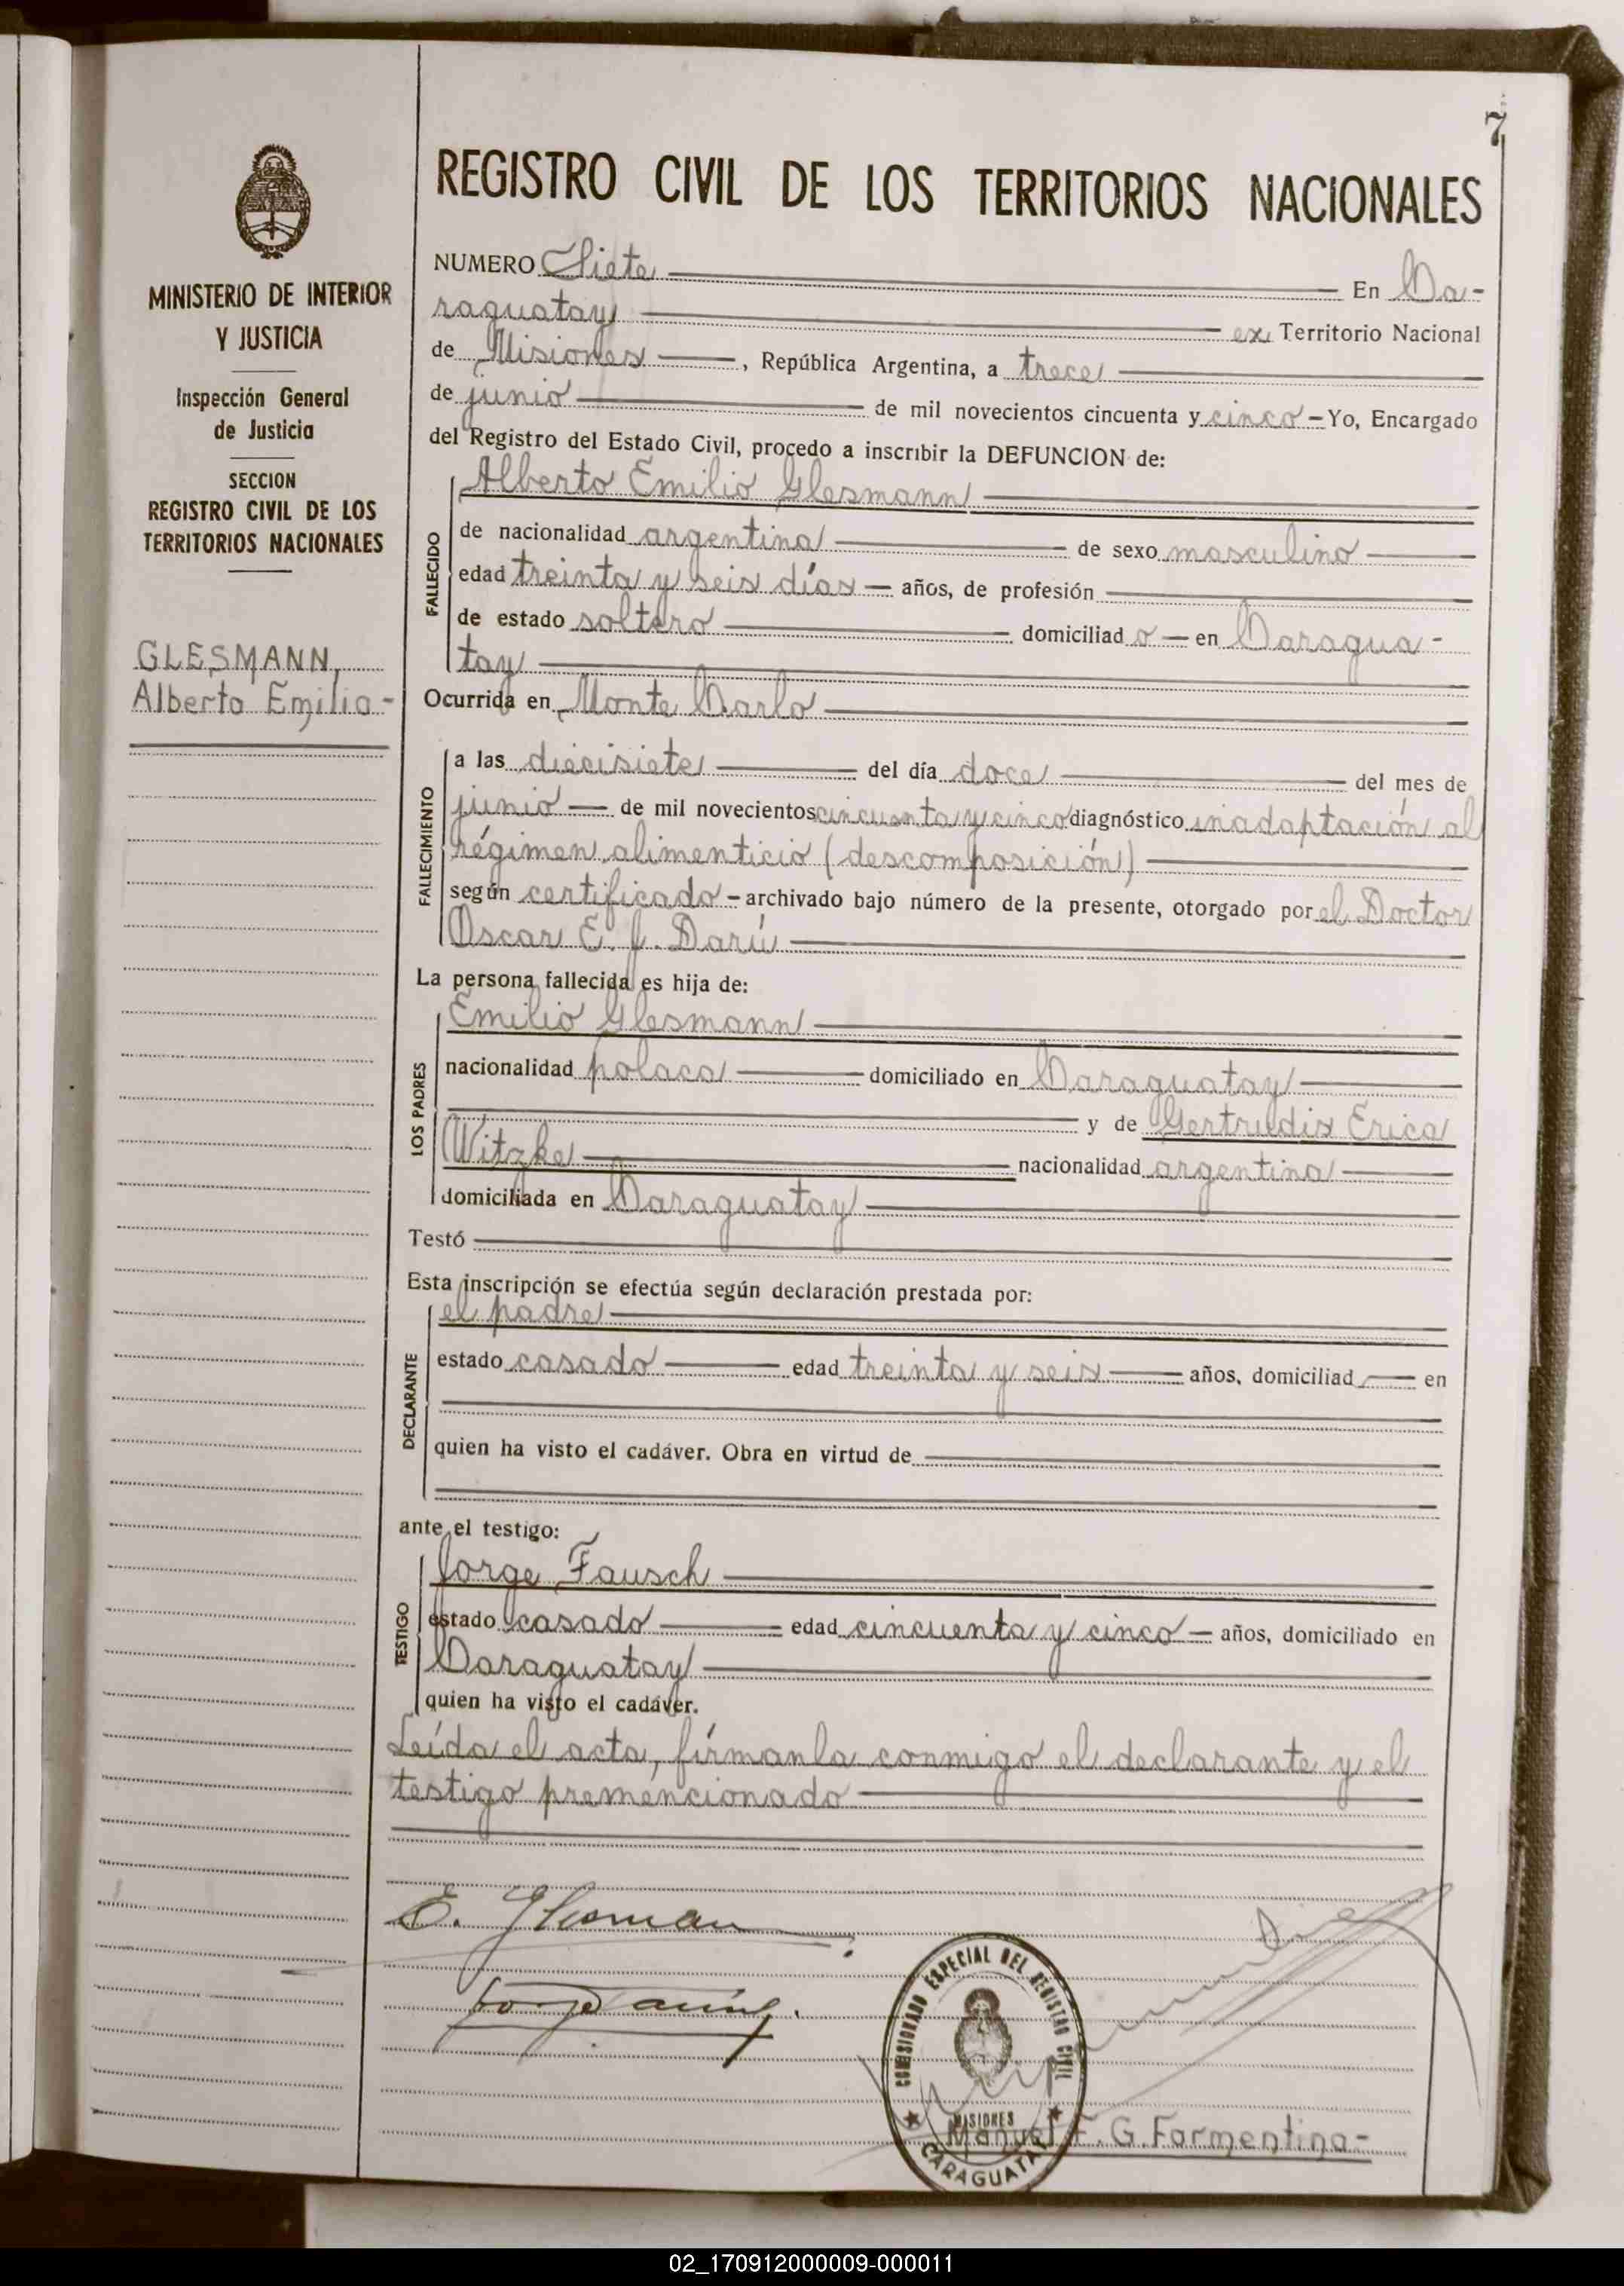 7
REGISTRO CIVIL DE LOS TERRITORIOS NACIONALES
MINISTERIO DE INTERIOR
Y JUSTICIA
Inspección General
de Justicia
SECCION
REGISTRO CIVIL DE LOS
TERRITORIOS NACIONALES
GLESMANN,
Alberto Emilio-
NUMERO Siete En Ca-
raguatay ex Territorio Nacional
de Misiones, República Argentina, a trece
de junio de mil novecientos cincuenta y cinco - Yo, Encargado
del Registro del Estado Civil, procedo a inscribir la DEFUNCION de:
FALLECIDO
Alberto Emilio Glesmann
de nacionalidad argentina de sexo masculino
edad treinta y seis días años, de profesión
de estado soltero domiciliado en Caragua-
tay
Ocurrida en Monte Carlo
FALLECIMIENTO
a las diecisiete del día doce del mes de
junio de mil novecientos cincuenta y cinco diagnóstico inadaptación al
régimen alimenticio (descomposición)
según certificado - archivado bajo número de la presente, otorgado por el Doctor
Oscar E. J. Darú
La persona fallecida es hija de:
LOS PADRES
Emilio Glesmann
nacionalidad polaca domiciliado en Caraguatay
y de Gertrudis Erica
Witzke nacionalidad argentina
domiciliada en Caraguatay
Testó
Esta inscripción se efectúa según declaración prestada por:
DECLARANTE
el padre
estado casado edad treinta y seis años, domiciliad en
quien ha visto el cadáver. Obra en virtud de
ante el testigo:
TESTIGO
Jorge Fausch
estado casado edad cincuenta y cinco años, domiciliado en
Caraguatay
quien ha visto el cadáver.
Leída el acta, fírmanla conmigo el declarante y el
testigo premencionado
E. Glesman
COMISIONADO ESPECIAL DEL REGISTRO CIVIL
MISIONES
CARAGUATAY
Manuel F. G. Formentina-
02_170912000009-000011